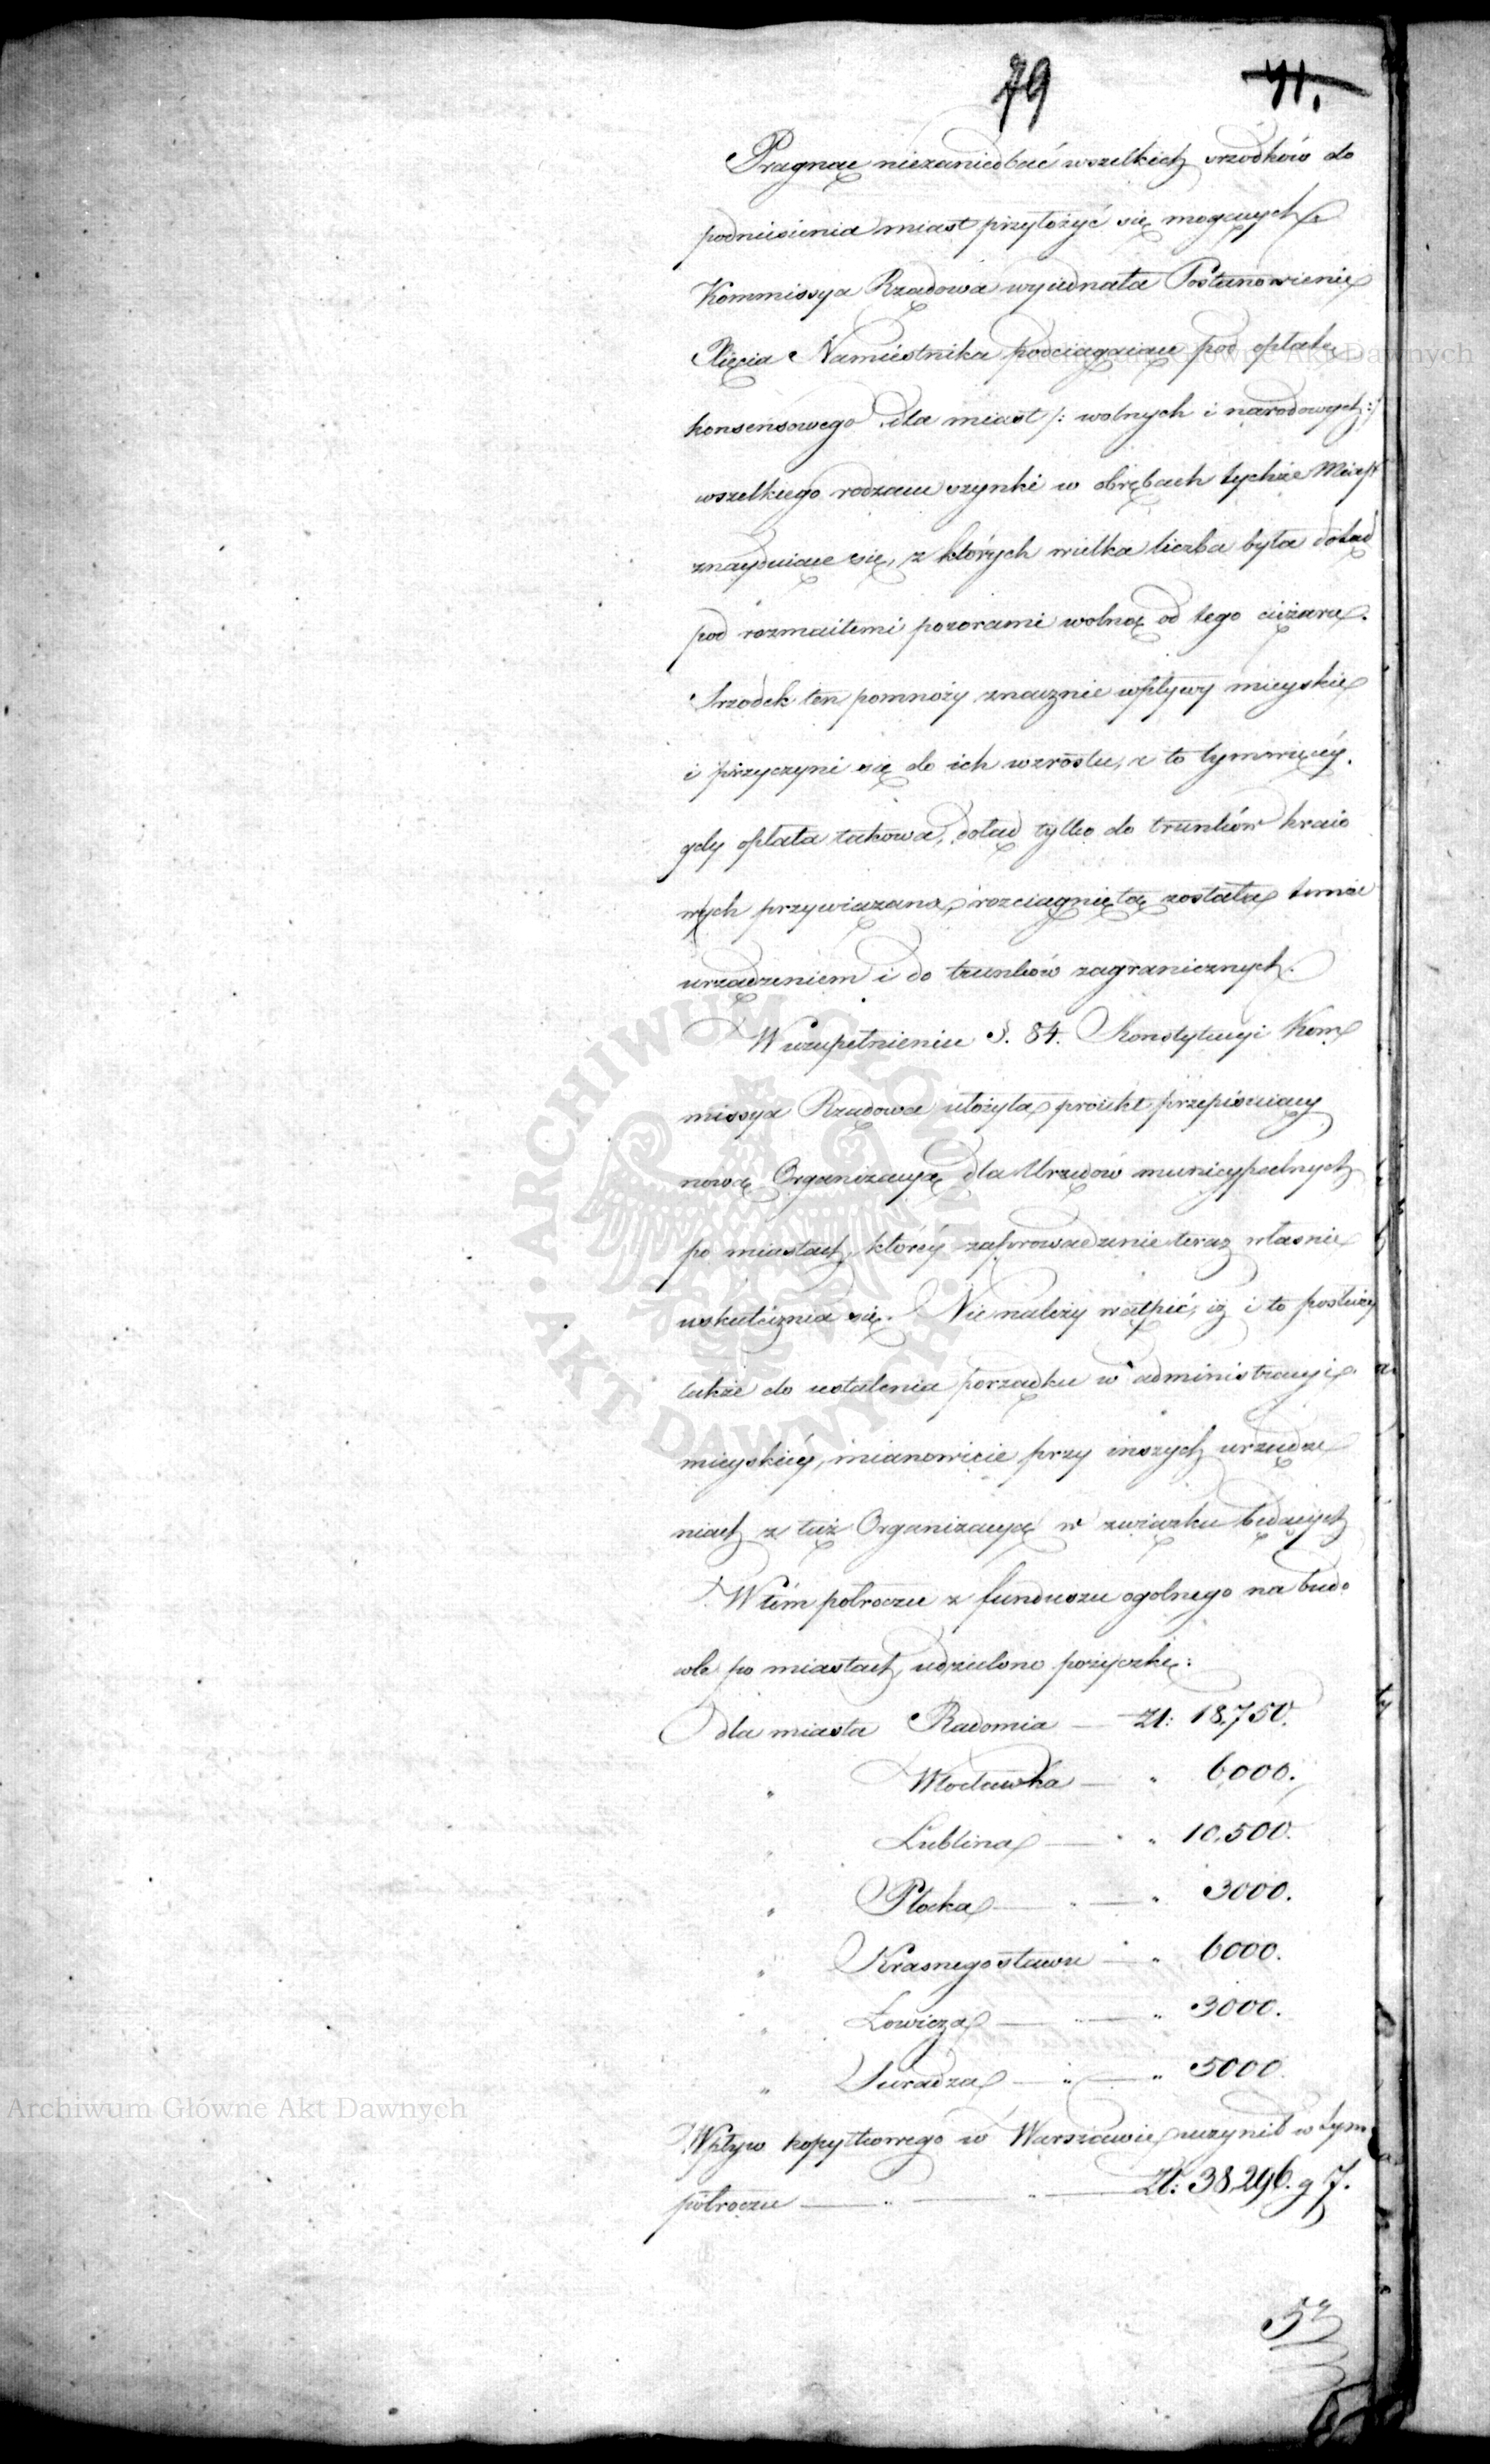 79 41.
Pragnąc niezaniedbać wszelkich srzodków do
podniesienia miast przyłożyć się mogących
Kommissya Rządowa wyiednała Postanowienie
Xięcia Namiestnika podciągaiące pod opłatę
konsensowego dla miast /: wolnych i narodowych :/
wszelkiego rodzaiu szynki w obrębach tychże Miast
znayduiące się, z których wielka liczba była dotąd
pod rozmaitemi pozorami wolną od tego ciężaru.
Srzodek ten pomnoży znacznie wpływy mieyskie
i przyczyni się do ich wzrostu, a to tymwięcéy,
gdy opłata takowa, dotąd tylko do trunków kraio
wych przywiązana, rozciągniętą została temże
urządzeniem i do trunków zagranicznych.
W uzupełnieniu §. 84. Konstytucyi Kom
missya Rządowa ułożyła proiekt przepisuiący
nową Organizacyą dla Urzędów municypalnych
po miastach, któréy zaprowadzenie teraz własnie
uskutecznia się. Nienależy wątpić, iż i to posłuży
także do ustalenia porządku w administracyi
mieyskiéy, mianowicie przy inszych urządze
niach z tąż Organizacyą w związku będących
W tém półroczu z funduszu ogolnego na budo
wle po miastach udzielono pożyczkę:
dla miasta Radomia — Zł: 18,750.
" Włocławka — " 6000.
" Lublina — " 10,500.
" Płocka — " 3000.
" Krasnegostawu — " 6000.
" Łowicza — " 3000.
" Sieradza — " 5000.
Wpływ kopytkowego w Warszawie uczynił w tym
półroczu — Zł: 38,296. g 7.
Archiwum Główne Akt Dawnych
Archiwum Główne Akt Dawnych
ARCHIWUM GŁÓWNE AKT DAWNYCH